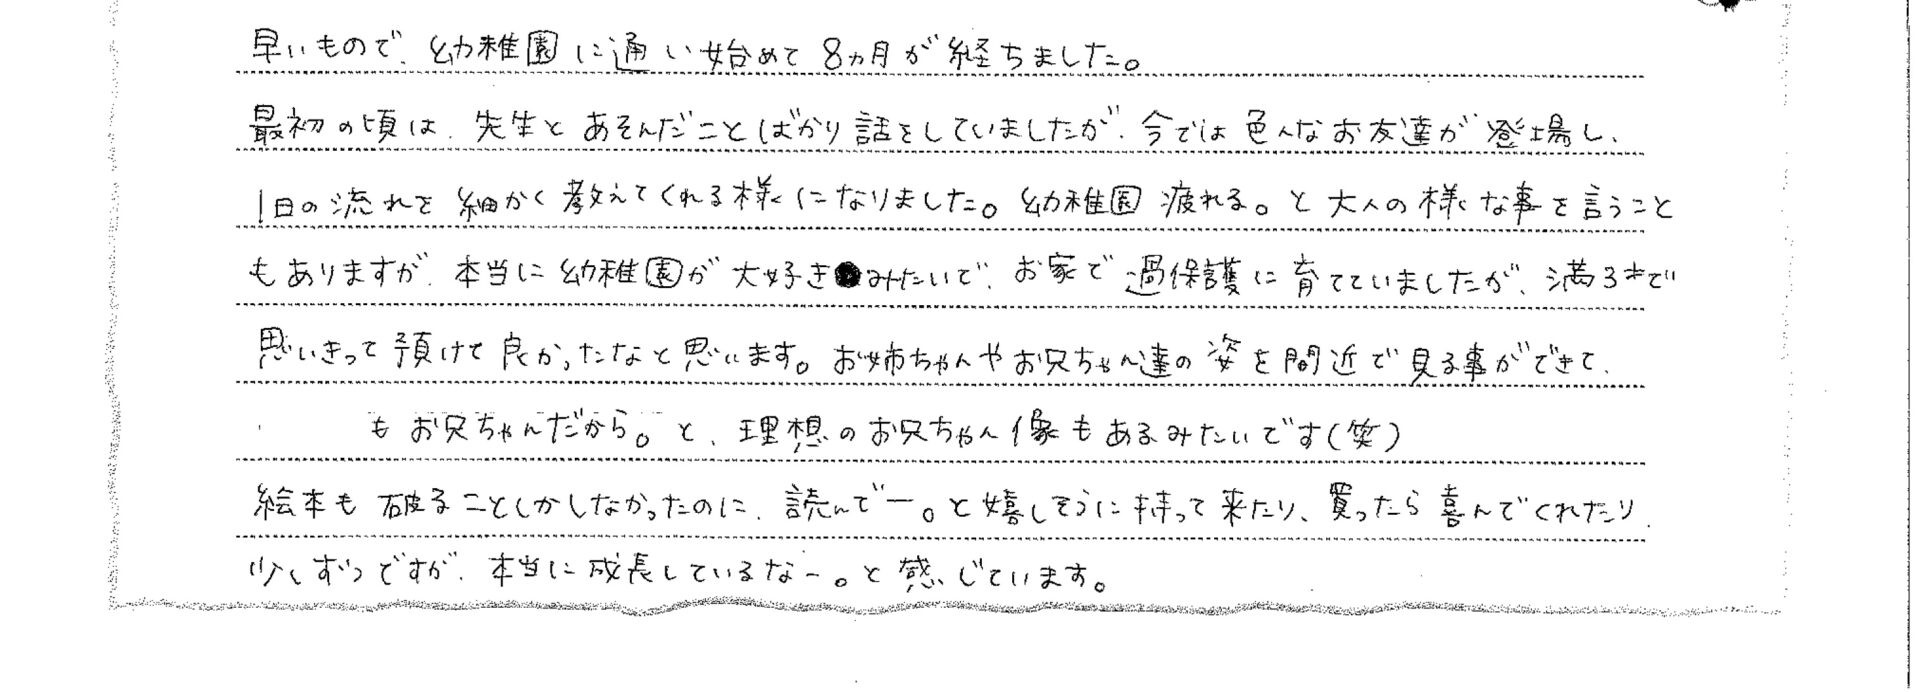 早いもので、幼稚園に通い始めて8ヵ月が経ちました。
最初の頃は、先生とあそんだことばかり話をしていましたが、今では色んなお友達が登場し、
1日の流れを細かく教えてくれる様になりました。幼稚園疲れる。と大人の様な事を言うこと
もありますが、本当に幼稚園が大好きみたいで、お家で過保護に育てていましたが、満3才で
思いきって預けて良かったなと思います。お姉ちゃんやお兄ちゃん達の姿を間近で見る事ができて、
もお兄ちゃんだから。と、理想のお兄ちゃん像もあるみたいです(笑)
絵本も破ることしかしなかったのに、読んでー。と嬉しそうに持って来たり、買ったら喜んでくれたり、
少しずつですが、本当に成長しているなー。と感じています。